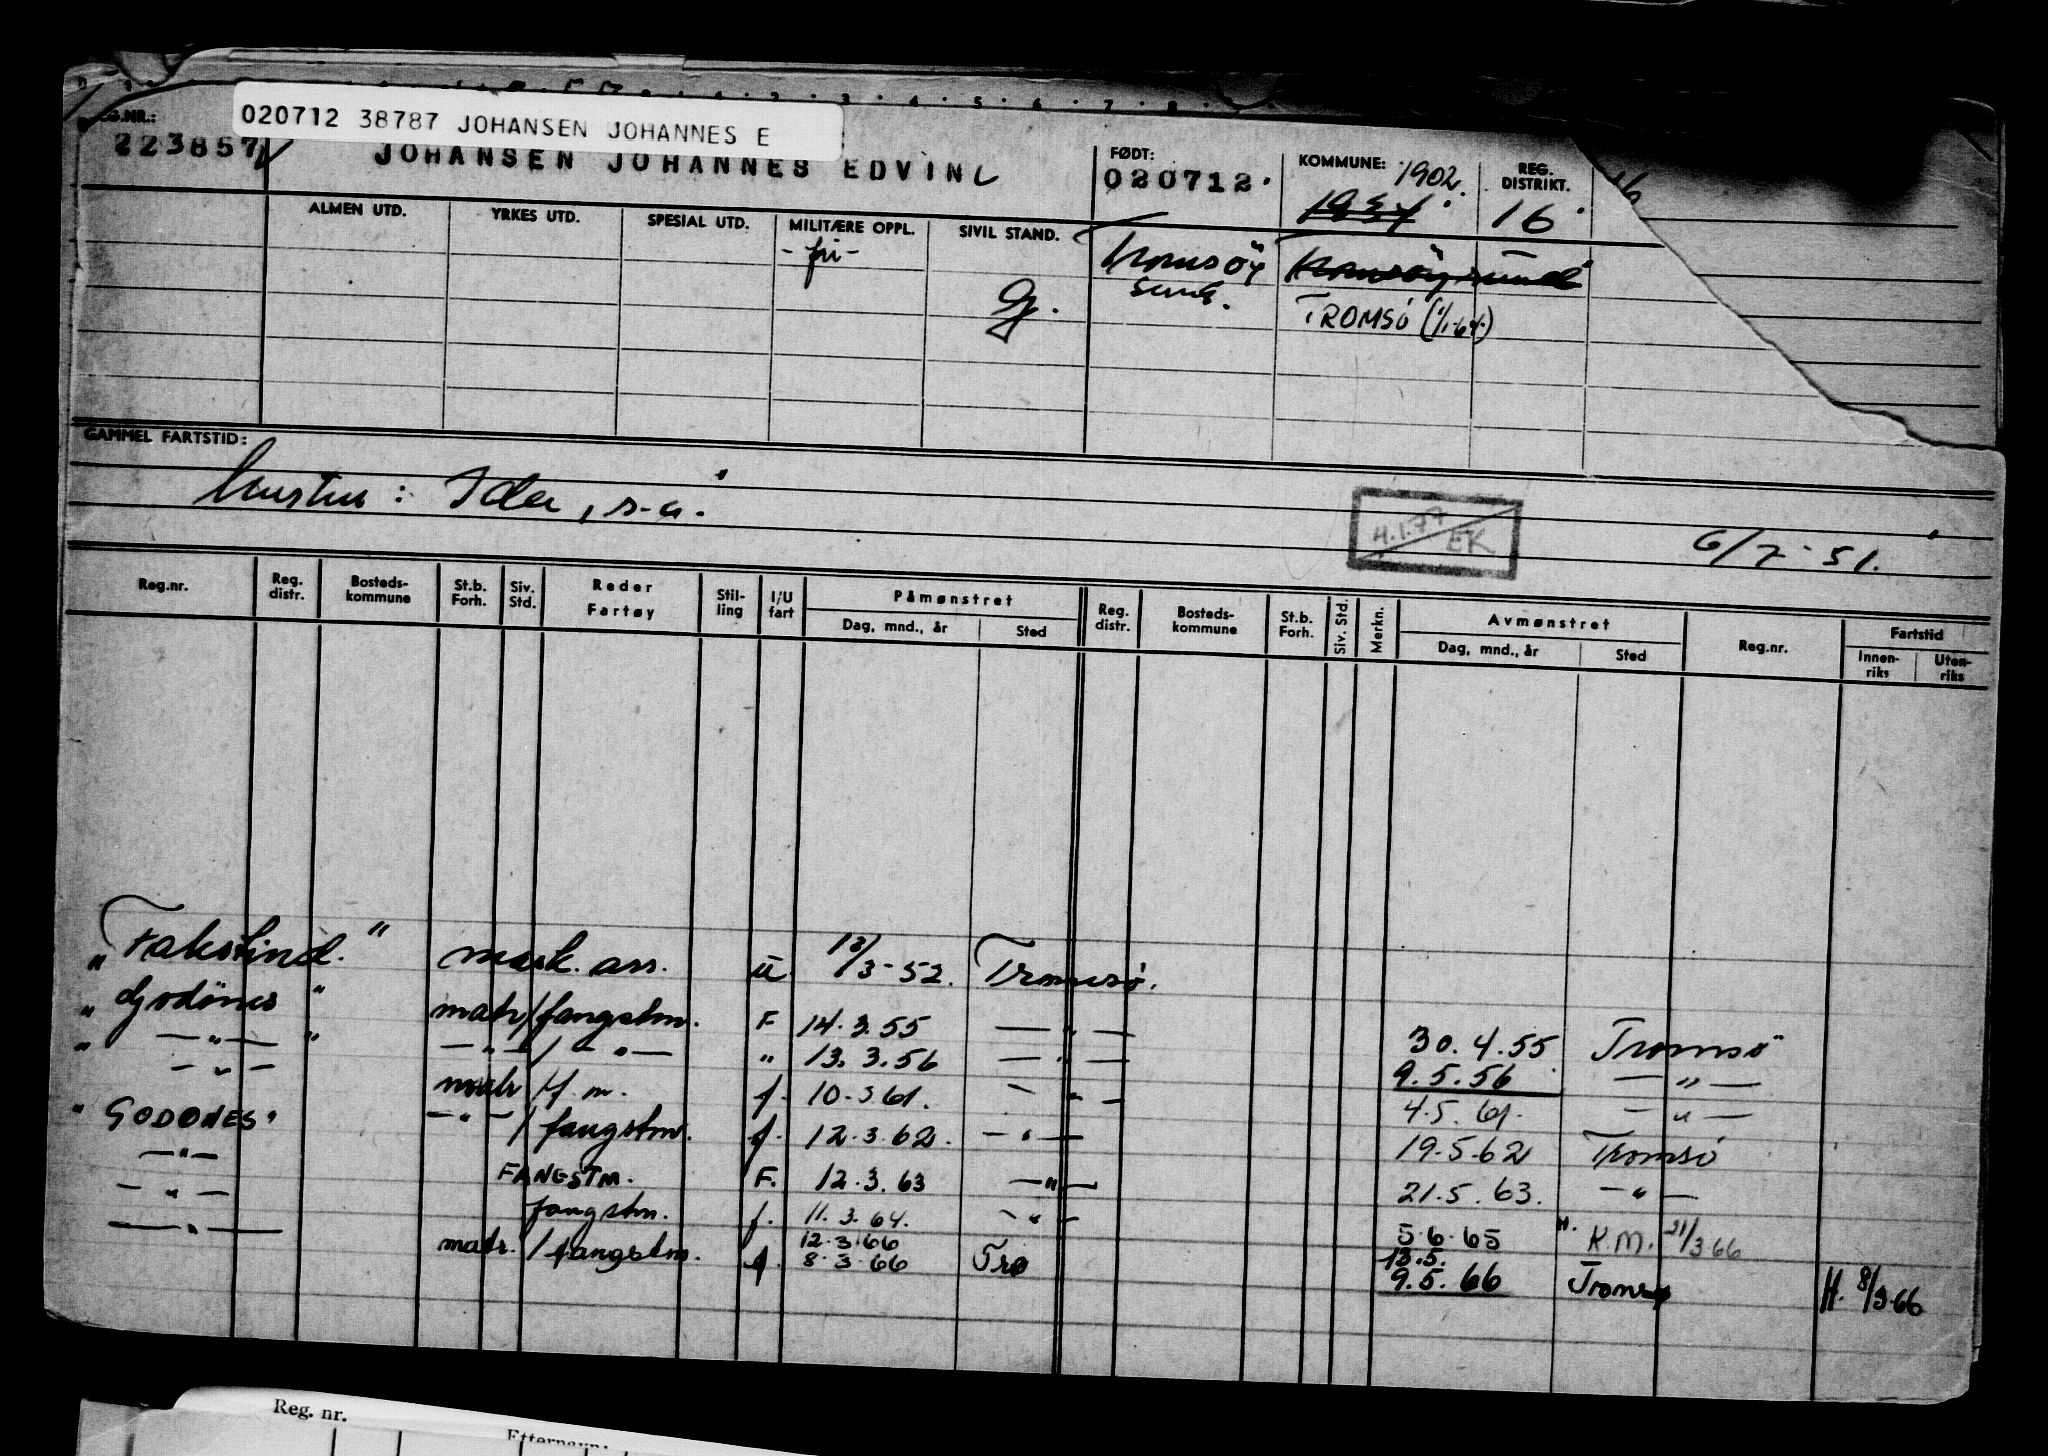 020712 38787 JOHANSEN JOHANNES E
REG.NR.: 223857 JOHANSEN JOHANNES EDVIN FØDT: 020712. KOMMUNE: 1902. 1934 REG. DISTRIKT. 16
ALMEN UTD. YRKES UTD. SPESIAL UTD. MILITÆRE OPPL. SIVIL STAND.
-fri- Tromsöy Tromsöysund
g. sund. TROMSÖ (1/1-64)
GAMMEL FARTSTID:
hustru: Ida, s.a.
4.1.77 EK
6/7-51.
Reg.nr. Reg. distr. Bosteds-kommune St.b. Forh. Siv. Std. Reder Fartøy Stil-ling I/U fart Påmønstret Dag, mnd., år Sted Reg. distr. Bosteds-kommune St.b. Forh. Siv. Std. Merkn. Avmønstret Dag, mnd., år Sted Reg.nr. Fartstid Innen-riks Uten-riks
"Fakstind." mask. ass. u 18/3-52. Tromsø.
"Godönes" matr/fangstm. F 14.3.55 —"— 30.4.55 Tromsö
" —"— " —"—/—"— " 13.3.56 —"— 9.5.56 —"—
—"— matr/f.m. f. 10.3 61. —"— 4.5.61. —"—
"GODÖNES" —"—/fangstm. f. 12.3.62. —"— 19.5.62 Tromsö
—"— FANGSTM. F. 12.3.63 —"— 21.5.63. —"—
—"— fangstm. f. 11.3.64. —"— 5.6.65 H. K.M. 21/3 66
—"— matr./fangstm. f. 12.3.66 8.3.66 Trø 13.5. 9.5.66 Tromsø H. 8/3.66
Reg. nr.
Etternavn: